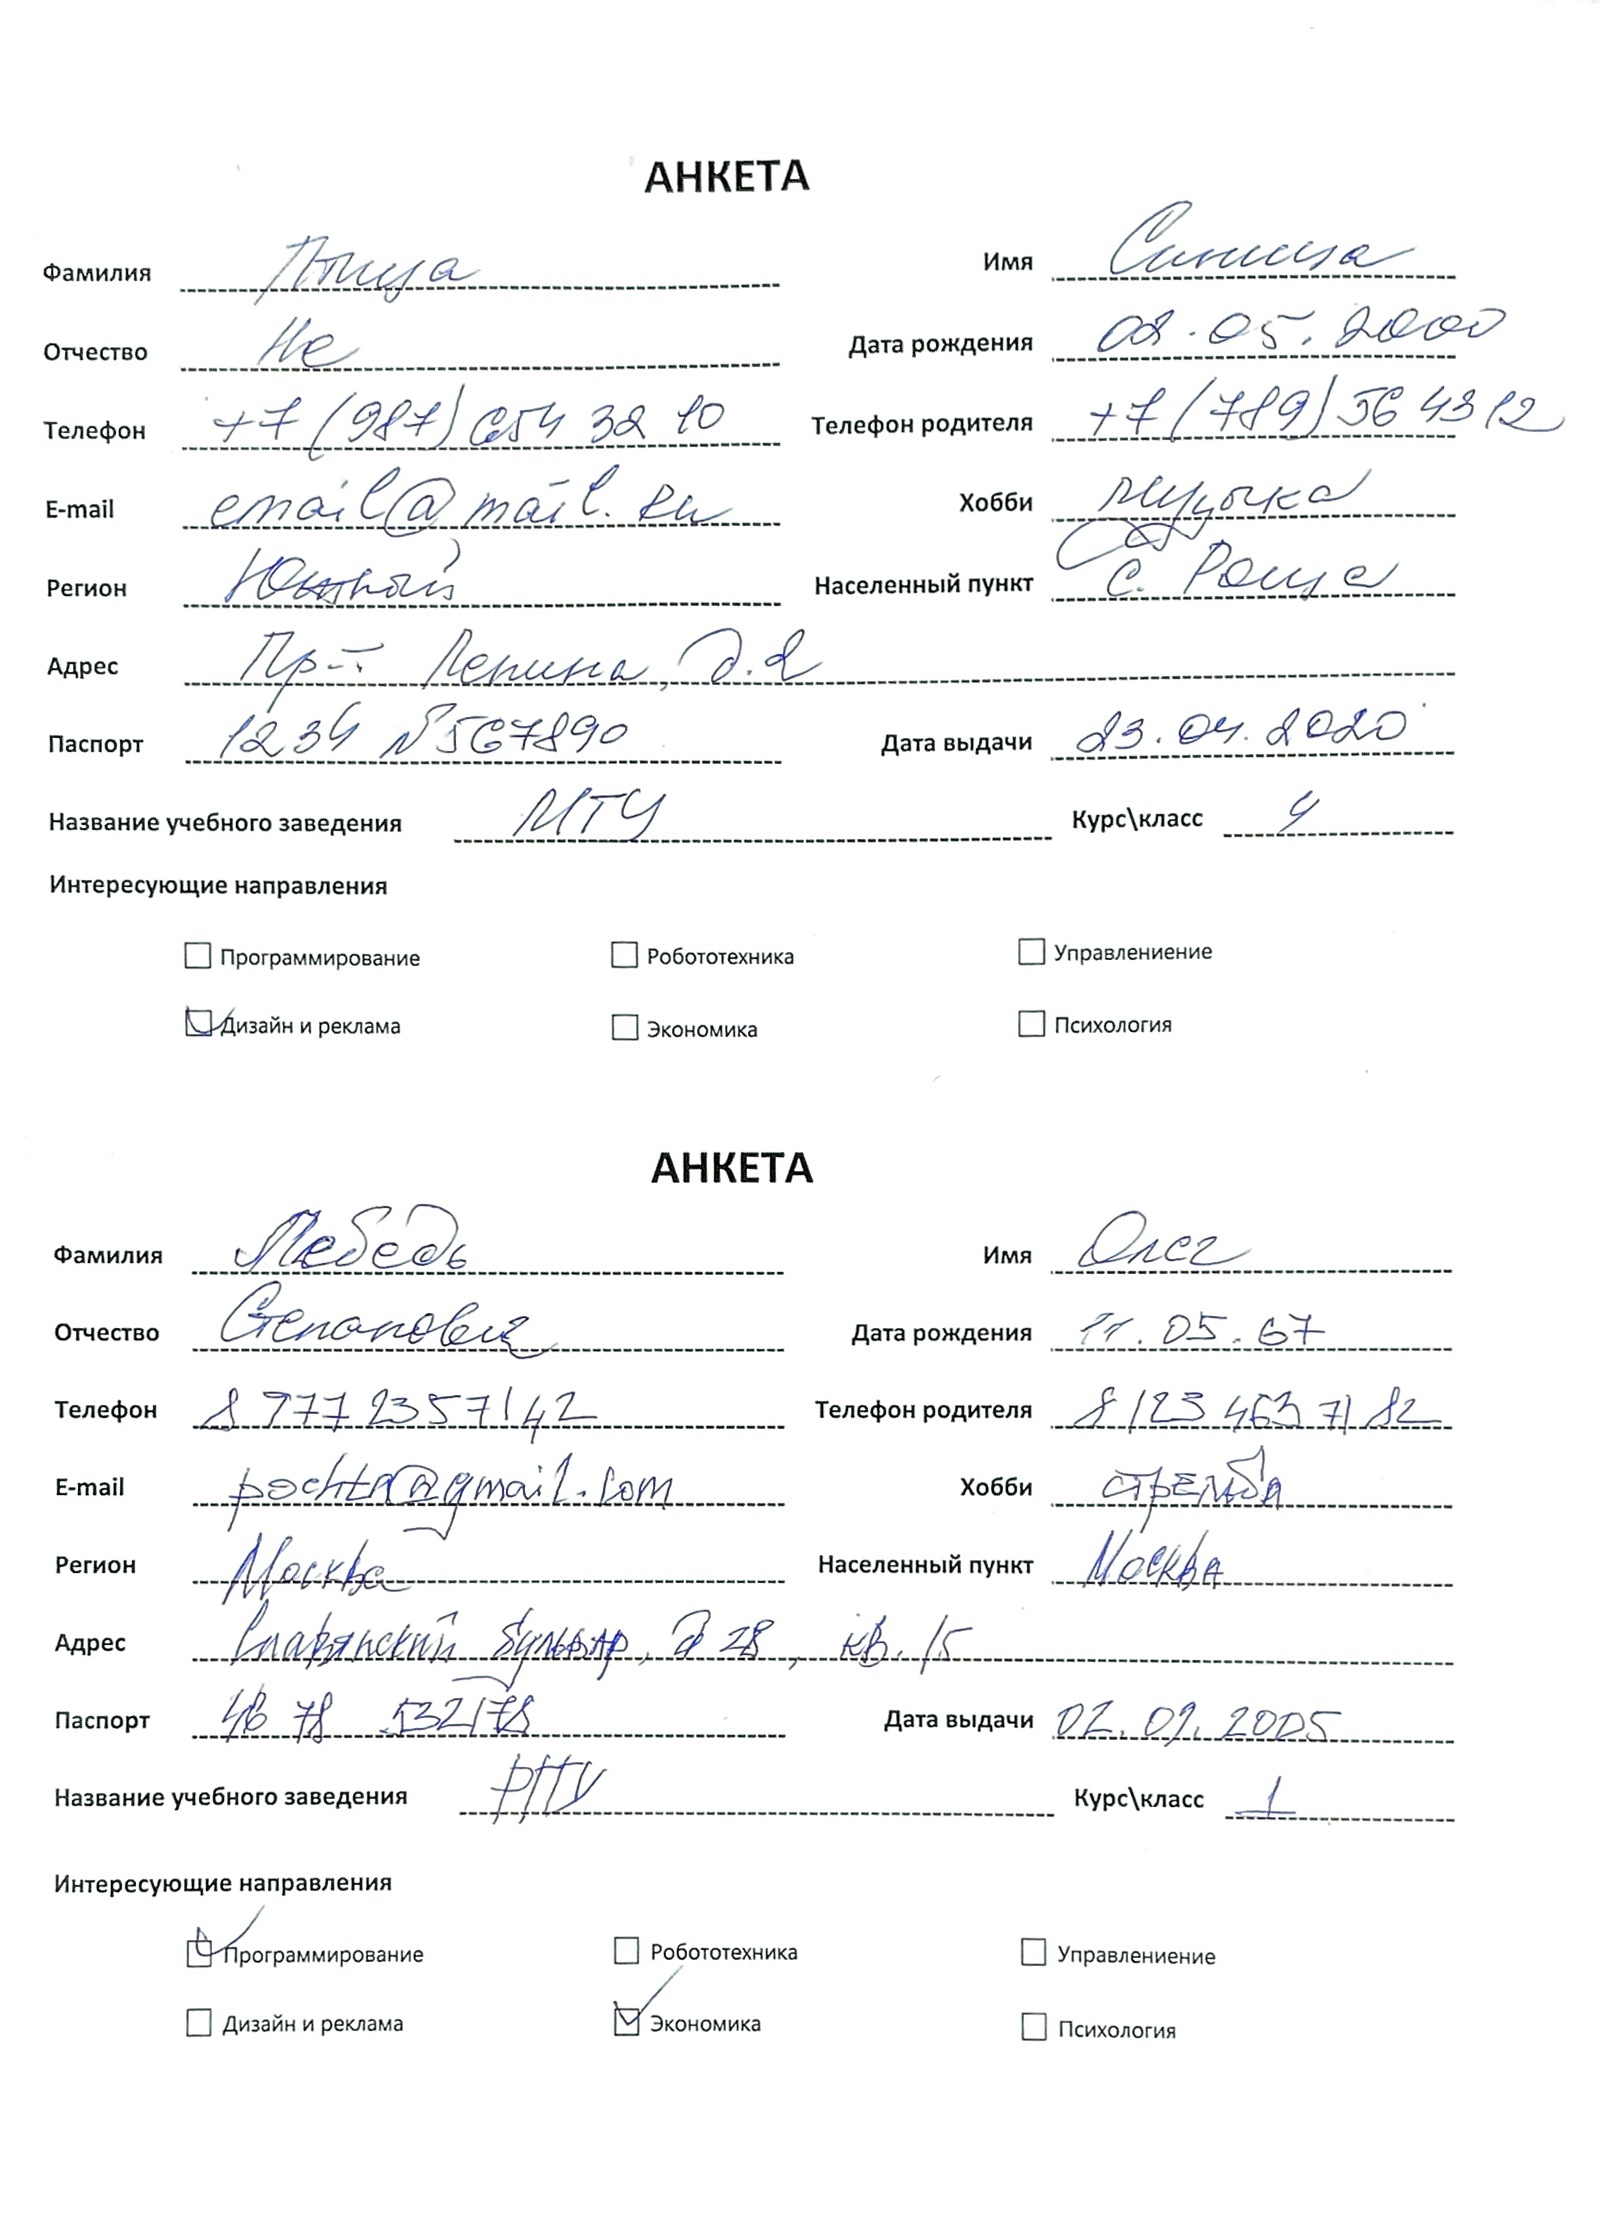 АНКЕТА
Фамилия Птица Имя Синица
Отчество Не Дата рождения 02.05.2000
Телефон +7 (987) 654 32 10 Телефон родителя +7 (789) 56 43 12
E-mail email@mail.ru Хобби музыка
Регион Южный Населенный пункт с. Роща
Адрес Пр-т Ленина, д.2
Паспорт 1234 №567890 Дата выдачи 23.04.2020
Название учебного заведения МТУ Курс\класс 4
Интересующие направления
Программирование Робототехника Управлениение
Дизайн и реклама Экономика Психология
АНКЕТА
Фамилия Лебедь Имя Олег
Отчество Степанович Дата рождения 11.05.67
Телефон 8 977 2357142 Телефон родителя 8 123 463 71 82
E-mail pochta@gmail.com Хобби стрельба
Регион Москва Населенный пункт Москва
Адрес Славянский бульвар, д 28, кв. 15
Паспорт 46 78 532178 Дата выдачи 02.02.2005
Название учебного заведения Курс\класс 1
Интересующие направления
Программирование Робототехника Управлениение
Дизайн и реклама Экономика Психология